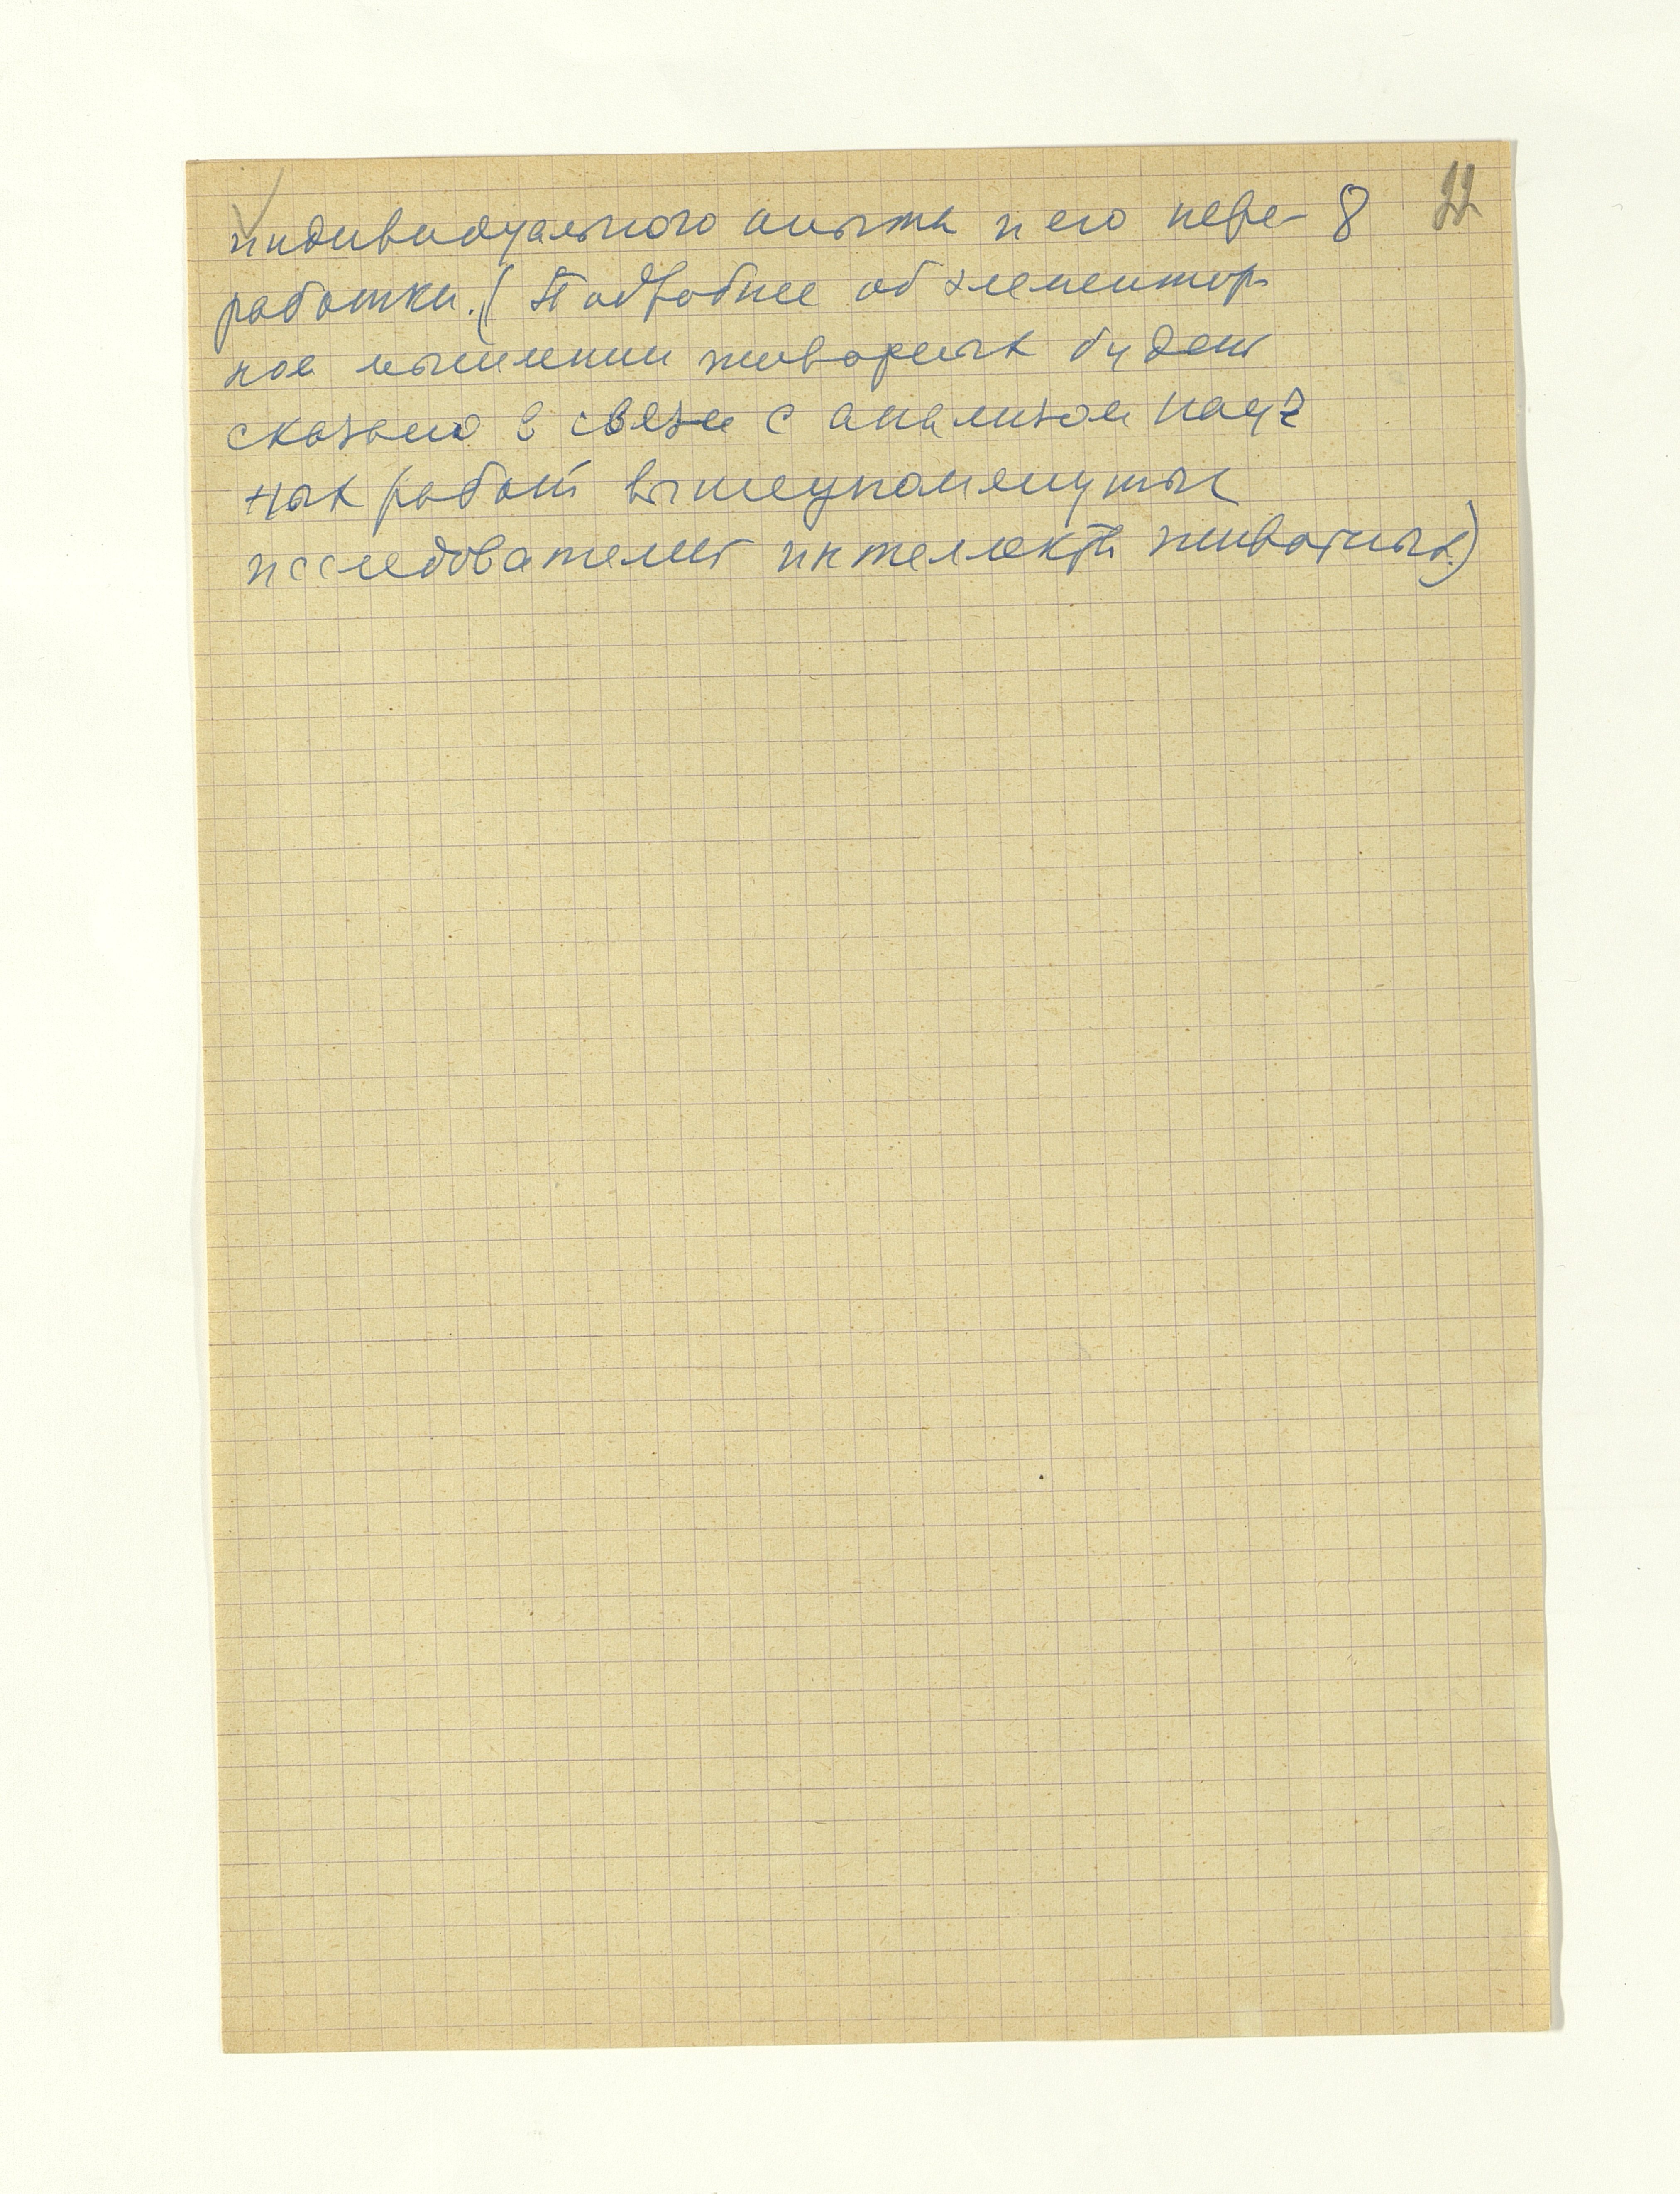 индивидуального опыта и его пере- 8 22
работки. (Подробнее об элементар-
ном мышлении животных будет
сказано в связи с анализом науч
ных работ вышеупомянутых
исследователей интеллекта животных.)